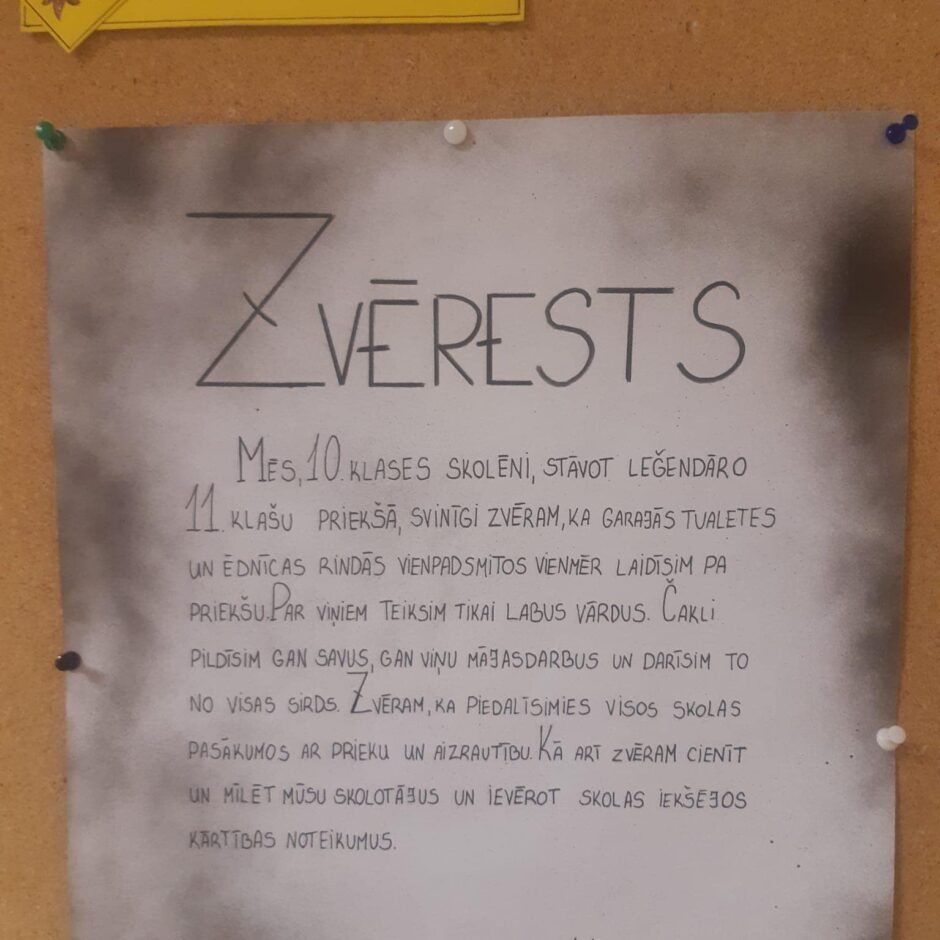 ZVĒRESTS
MĒS, 10. KLASES SKOLĒNI, STĀVOT LEĢENDĀRO
11. KLAŠU PRIEKŠĀ, SVINĪGI ZVĒRAM, KA GARAJĀS TUALETES
UN ĒDNĪCAS RINDĀS VIENPADSMITOS VIENMĒR LAIDĪSIM PA
PRIEKŠU. PAR VIŅIEM TEIKSIM TIKAI LABUS VĀRDUS. ČAKLI
PILDĪSIM GAN SAVUS, GAN VIŅU MĀJASDARBUS UN DARĪSIM TO
NO VISAS SIRDS. ZVĒRAM, KA PIEDALĪSIMIES VISOS SKOLAS
PASĀKUMOS AR PRIEKU UN AIZRAUTĪBU. KĀ ARĪ ZVĒRAM CIENĪT
UN MĪLĒT MŪSU SKOLOTĀJUS UN IEVĒROT SKOLAS IEKŠĒJOS
KĀRTĪBAS NOTEIKUMUS.